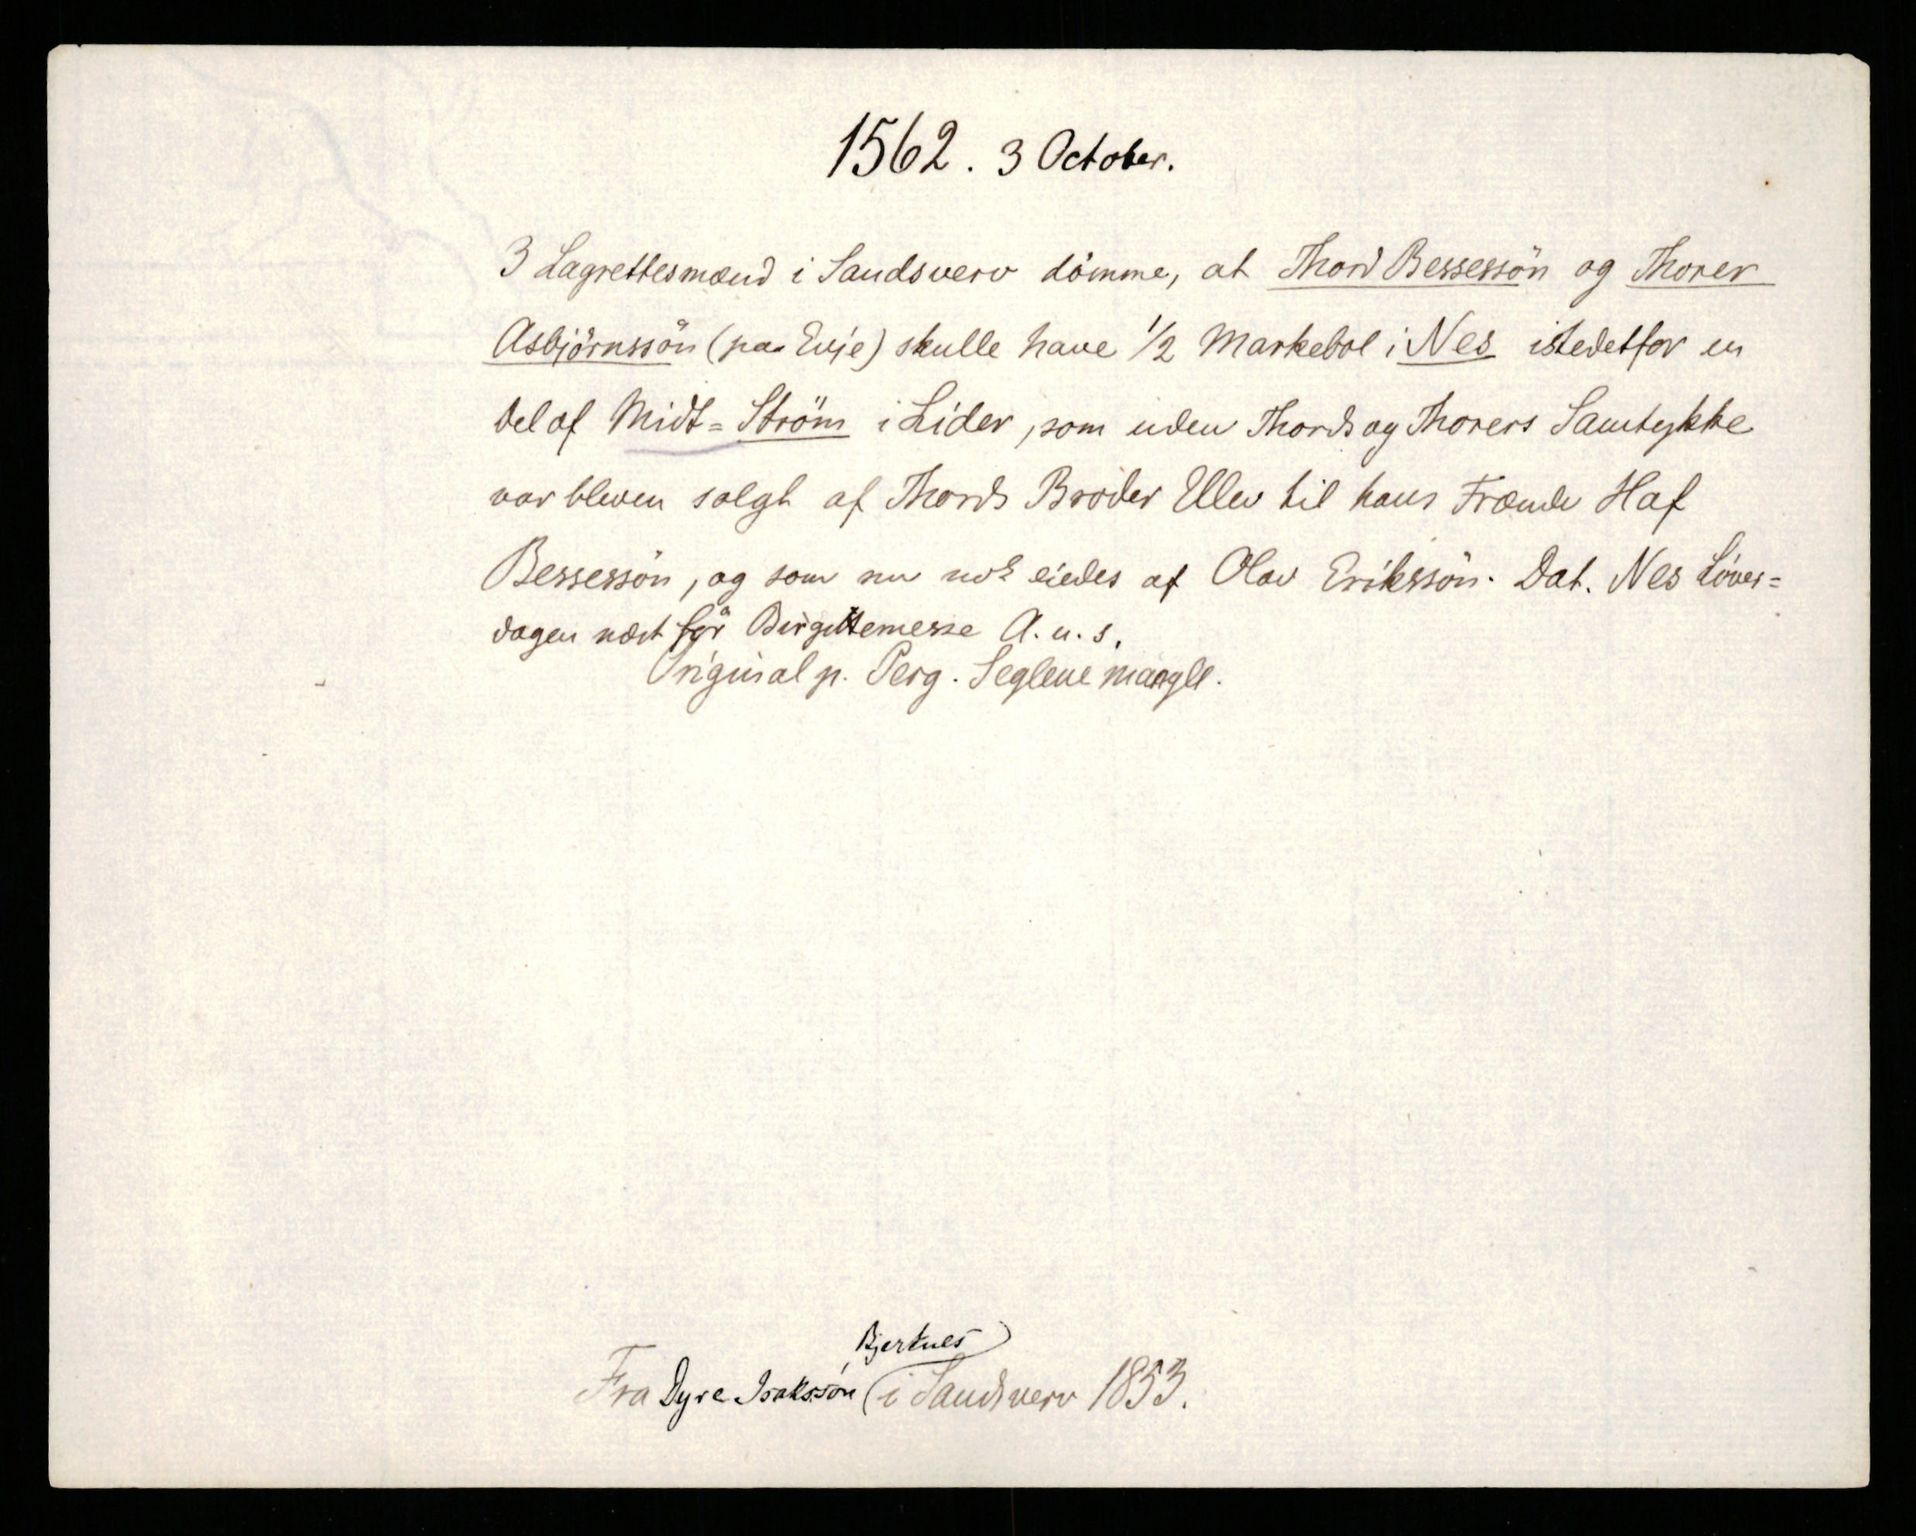 1562. 3 October.
3 Lagrettesmænd i Sandsverv dömme, at Thord Bessessön og Thorer
Asbjörnssön (paa Evje) skulle have 1/2 Markebol i Nes istedetfor en
Del af Midt=Ström i Lider, som uden Thords og Thorers Samtykke
var bleven solgt af Thords Broder Ellev til hans Frænde Haf
Bessessön, og som nu nok eiedes af Olav Erikssön. Dat. Nes Löver=
dagen næst för Birgittemesse A. u. s.
Original p. Perg. Seglene mangle.
Bjerknes
Fra Dyre Isakssön (i Sandsverv 1853.